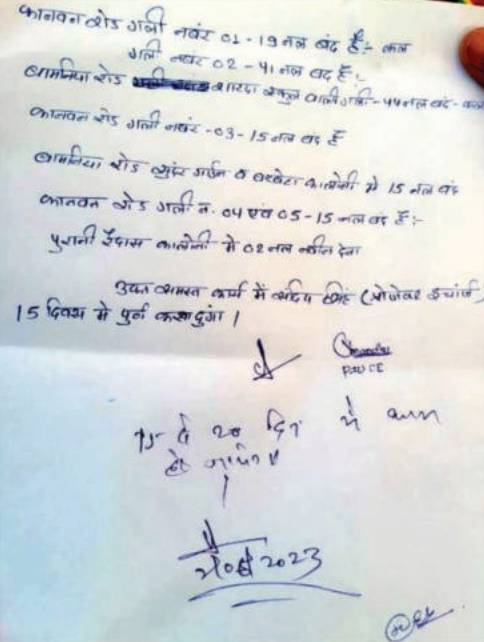 कानवन रोड गली नबंर 01 - 19 नल बंद है:- कल
गली नबंर 02 - 41 नल बंद है:-
बामनिया रोड शारदा स्कुल वाली गली - 44 नल बंद -
कानवन रोड गली नबंर -03 - 15 नल बंद है
बामनिया रोड सुंदर गार्डन व कालोनी मे 15 नल बंद
कानवन रोड गली न. 04 एवं 05 - 15 नल बंद है:-
पुरानी रैदास कालोनी मे 02 नल नवीन देना
उक्त समस्त कार्य में संदिप सिंह (प्रोजेक्ट इंचार्ज)
15 दिवस मे पुर्ण करवा दुंगा ।
15 से 20 दिन मे काम
हो जायेगा
2023